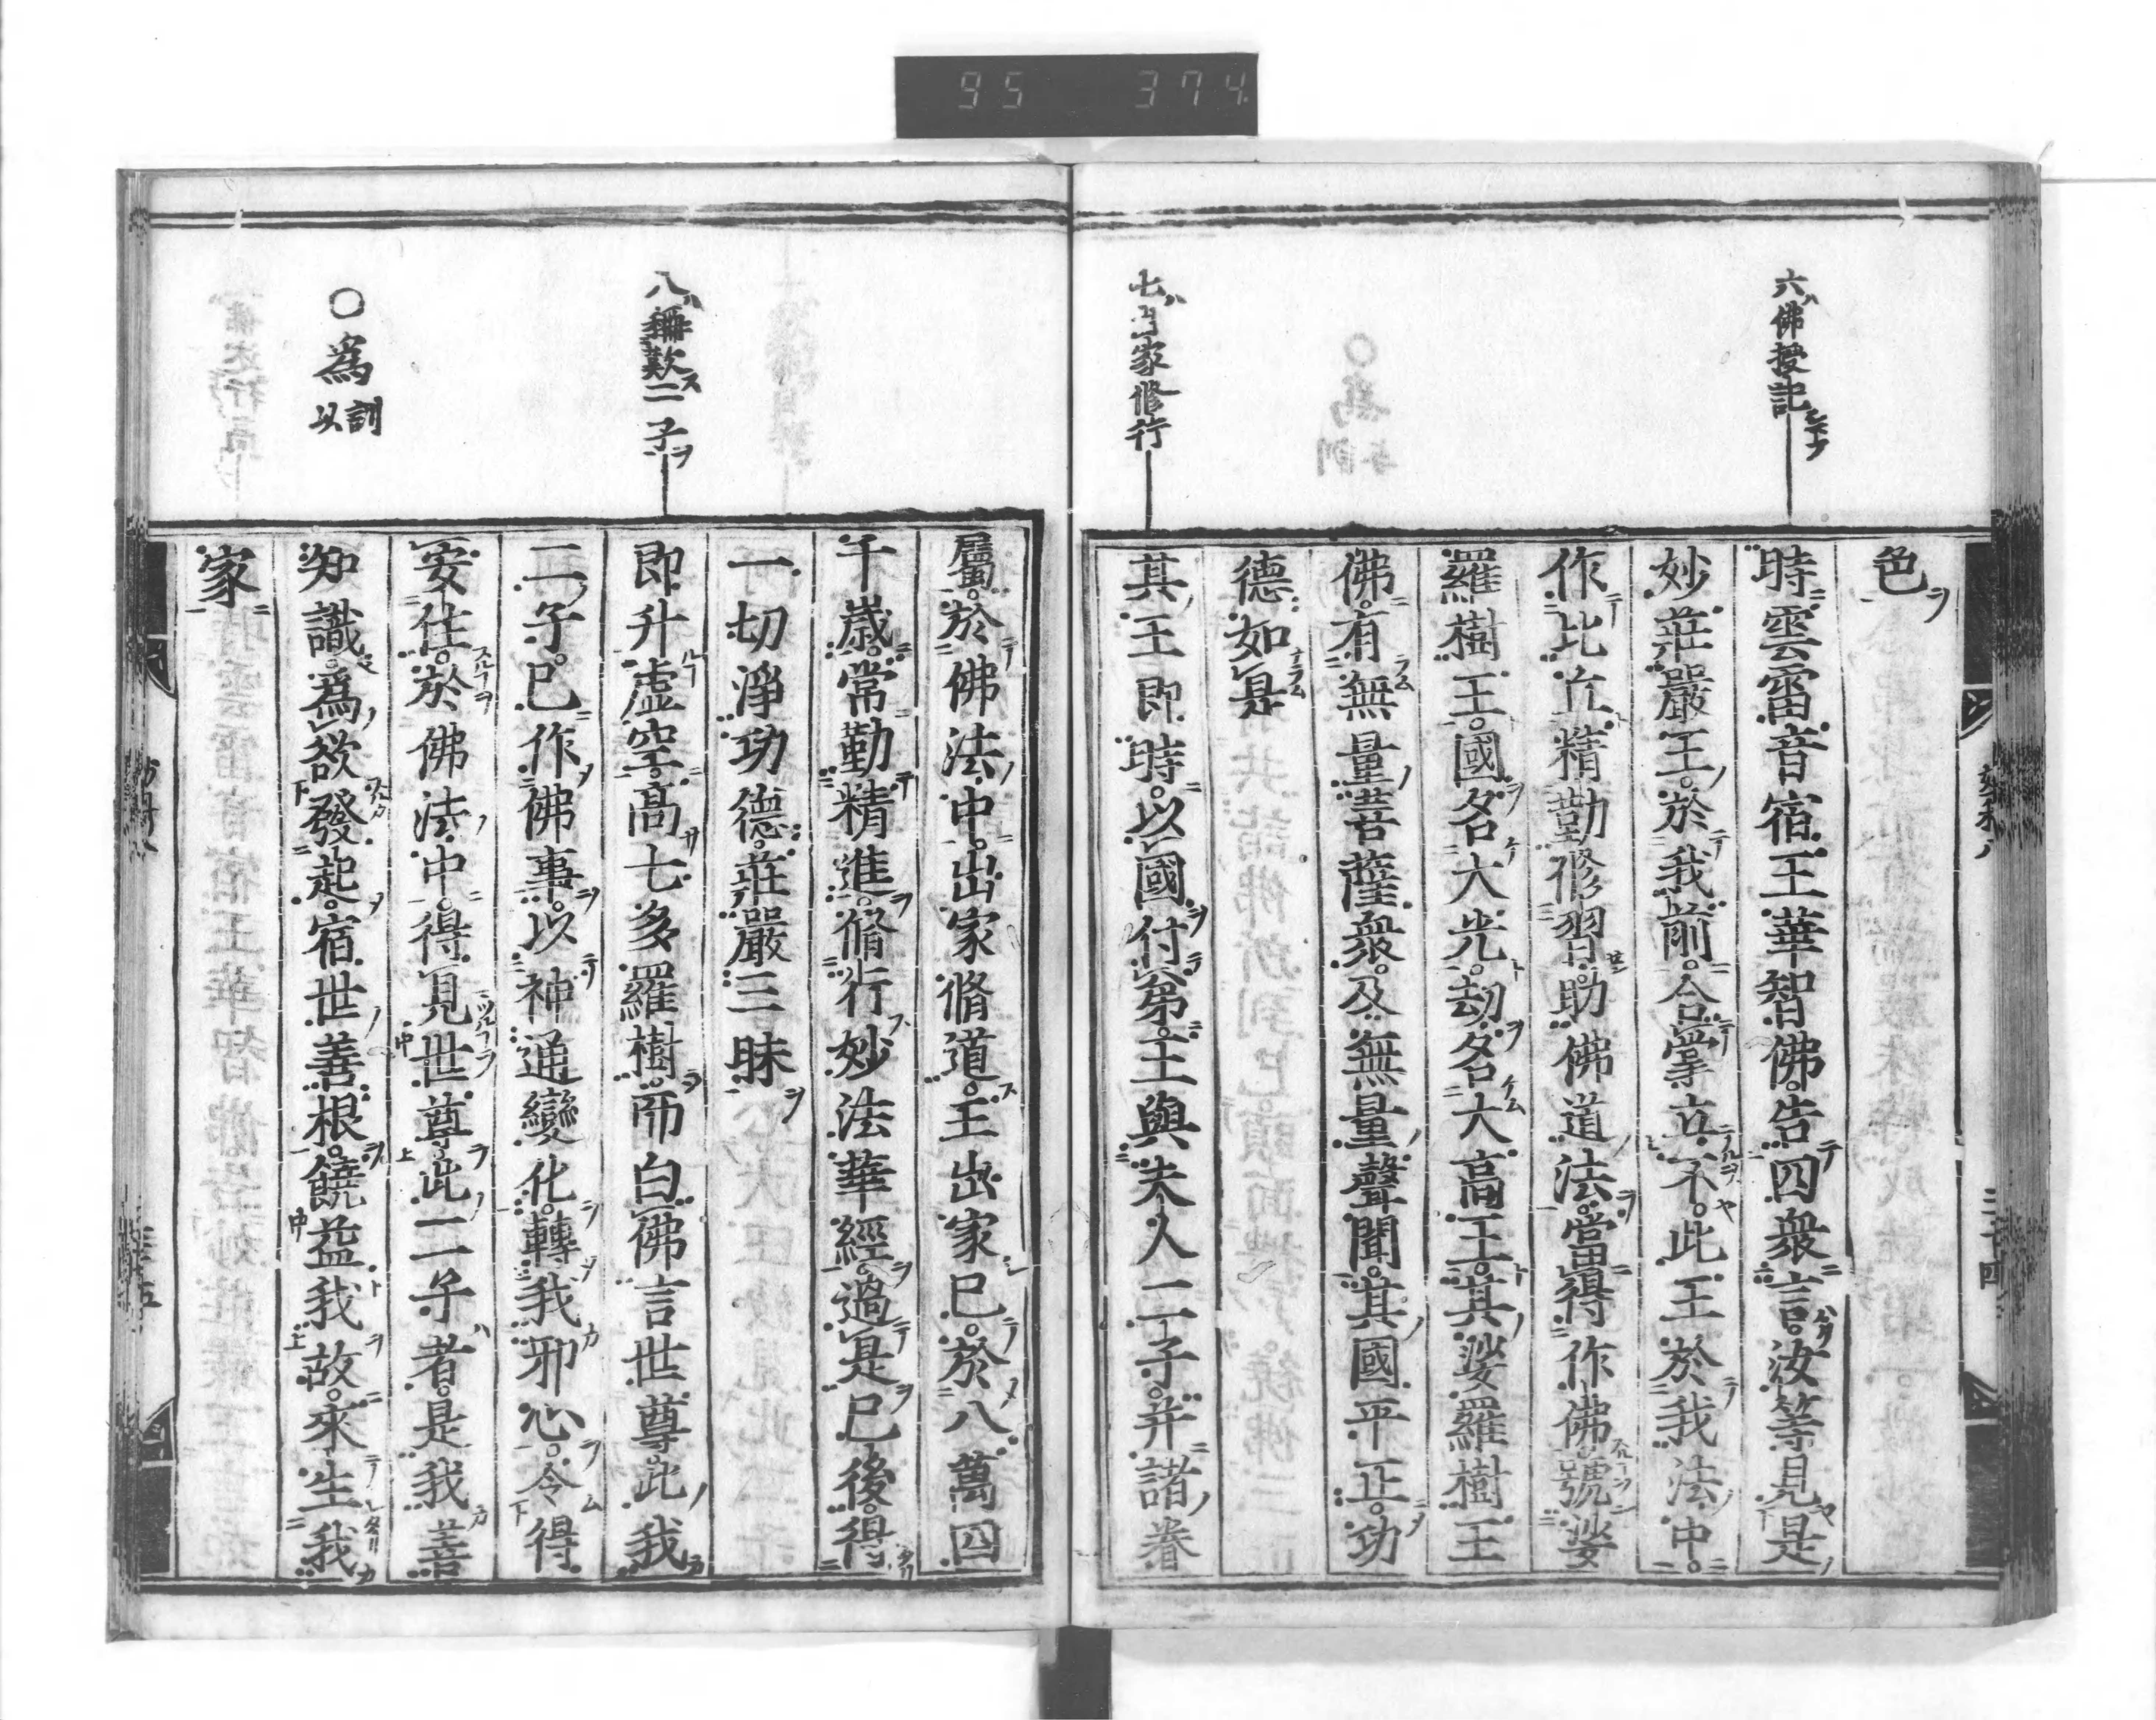 95 374
六ハ佛授記
色
時雲雷音宿王華智佛。告四衆言。汝等見是
妙莊嚴王。於我前。合掌立不。此王於我法中。
作比丘精勤修習。助佛道法。當得作佛號娑
羅樹王。國名大光。劫名大高王。其娑羅樹王
佛。有無量菩薩衆。及無量聲聞。其國平正。功
德如是
七ハ出家修行
其王即時。以國付弟。王與夫人二子。并諸眷
屬。於佛法中。出家脩道。王出家已。於八萬四
千歳。常勤精進。脩行妙法華經。過是已後。得
一切淨功德。莊嚴三昧
八ハ稱歎二子ヲ
即升虛空。高七多羅樹。而白佛言世尊。此我
二子。已作佛事。以神通變化。轉我邪心。令得
安住。於佛法中。得見世尊。此二子者。是我善
〇為 訓以
知識。為欲發起。宿世善根。饒益我故。來生我
家